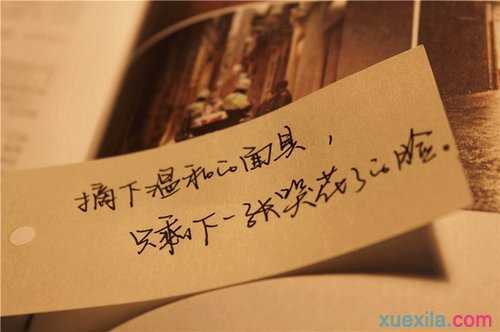 摘下温和的面具，
只剩下一张哭花了的脸。
xuexila.com